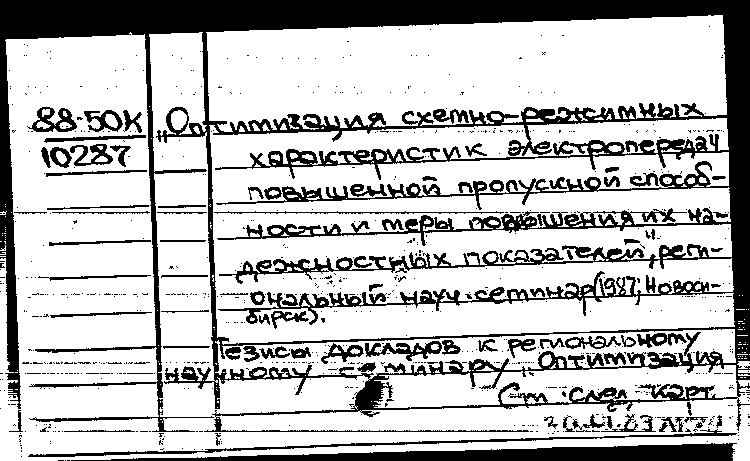 88-50К
10287
„Оптимизация схемно-режимных
характеристик электропередач
повышенной пропускной способ-
ности и меры повышения их на-
дежностных показателей", реги-
ональный науч. семинар (1987; Новоси-
бирск).
Тезисы докладов к региональному
научному семинару „Оптимизация
См. след. карт.